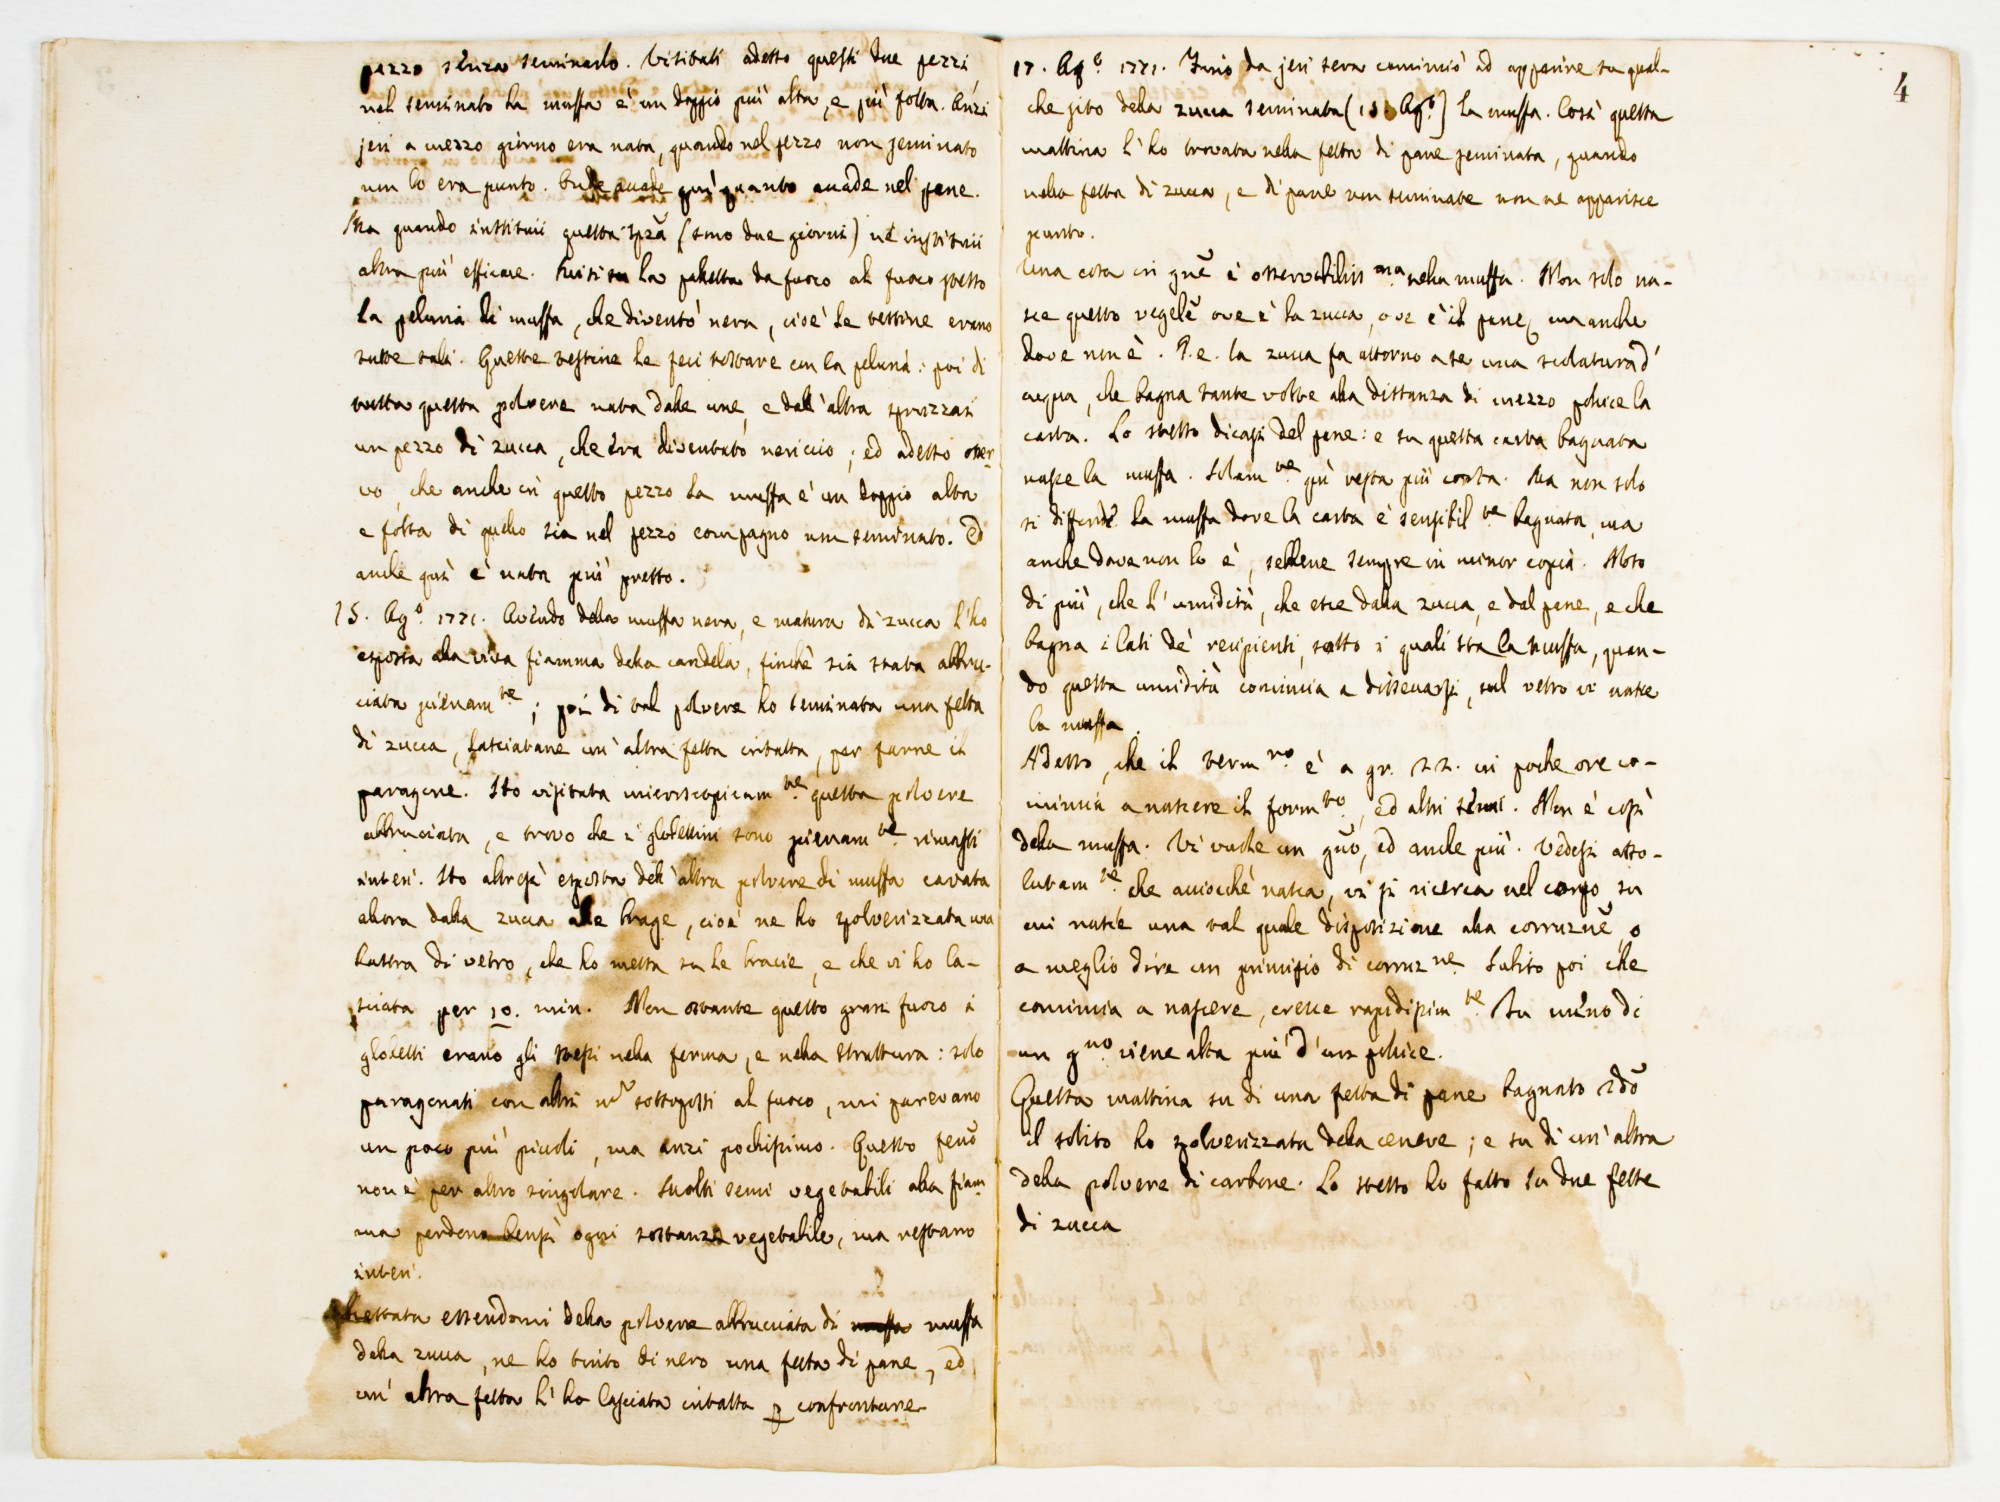 pezzo senza seminarlo. Visitati adesso questi due pezzi,
nel seminato la muffa è un doppio più alta, e più folta. Anzi
jeri a mezzo giorno era nata, quando nel pezzo non seminato
non lo era punto. Onde accade quì quanto accade nel pane.
Ma quando instituii questa spzã (sono due giorni) ne instituii
altra più efficace. Misi su la paletta da fuoco al fuoco stesso
la peluria di muffa, che diventò nera, cioè le testine erano
tutte tali. Queste testine le feci saltare con la peluria: poi di
tutta questa polvere nata dalle une, e dall'altra spruzzai
un pezzo di zucca, che era diventato nericcio; ed adesso osser-
vo, che anche in questo pezzo la muffa è un doppio alta
e folta di quello sia nel pezzo compagno non seminato. Ed
anche quì è nata più presto.
15. Ag.º 1771. Avendo della muffa nera, e matura di zucca l'ho
esposta alla viva fiamma della candela, finchè sia stata abbru-
ciata pienam.te; poi di tal polvere ho seminata una fetta
di zucca, lasciatane un'altra fetta intatta, per farne il
paragone. Ho visitata microscopicam.te questa polvere
abbruciata, e trovo che i globettini sono pienam.te rimasti
interi. Ho altresì esposta dell'altra polvere di muffa cavata
allora dalla zucca alle brage, cioè ne ho spolverizzata una
lastra di vetro, che ho messa su le bracie, e che vi ho la-
sciata per 10. min. Non ostante questo gran fuoco i
globetti erano gli stessi nella forma, e nella struttura: solo
paragonati con altri nõ sottoposti al fuoco, mi parevano
un poco più piccoli, ma anzi pochissimo. Questo fenõ
non è per altro singolare. Molti semi vegetabili alla fiam-
ma perdono bensì ogni sostanza vegetabile, ma restano
interi.
Restata essendomi della polvere abbruciata di muffa muffa
della zucca, ne ho tinto di nero una fetta di pane, ed
un'altra fetta l'ho lasciata intatta p confrontare
4
17. Ag.º 1771. Fino da jeri sera cominciò ad apparire su qual-
che sito della zucca seminata (15. Ag.º) la muffa. Così questa
mattina l'ho trovata nella fetta di pane seminata, quando
nella fetta di zucca, e di pane non seminate non ne apparisce
punto.
Una cosa in gnẽ è osservabilis.ma nella muffa. Non solo na-
sce questo vegelẽ ove è la zucca, ove è il pane, ma anche
dove non è. P.e. la zucca fa attorno a se una scolatura d'
acqua, che bagna tante volte alla distanza di mezzo pollice la
carta. Lo stesso dicasi del pane: e su questa carta bagnata
nasce la muffa. Solam.te quì resta più corta. Ma non solo
si diffonde la muffa dove la carta è sensibil.te bagnata, ma
anche dove non lo è, sebbene sempre in minor copia. Noto
di più, che l'umidità, che esce dalla zucca, e dal pane, e che
bagna i lati de' recipienti, sotto i quali sta la muffa, quan-
do questa umidità comincia a disseccarsi, sul vetro vi nasce
la muffa.
Adesso, che il term.ro è a gr. 22. in poche ore co-
mincia a nascere il form.to, ed altri semi. Non è così
della muffa. Vi vuole un gnõ, ed anche più. Vedesi asso-
lutam.te che acciocchè nasca, vi si ricerca nel corpo su
cui nasce una tal quale disposizione alla corruznẽ, o
a meglio dire un principio di corruz.ne Subito poi che
comincia a nascere, cresce rapidissim.te In meno di
un g.no viene alta più d'un pollice.
Questa mattina su di una fetta di pane bagnato 2dõ
il solito ho spolverizzata della cenere; e su di un'altra
della polvere di carbone. Lo stesso ho fatto su due fette
di zucca